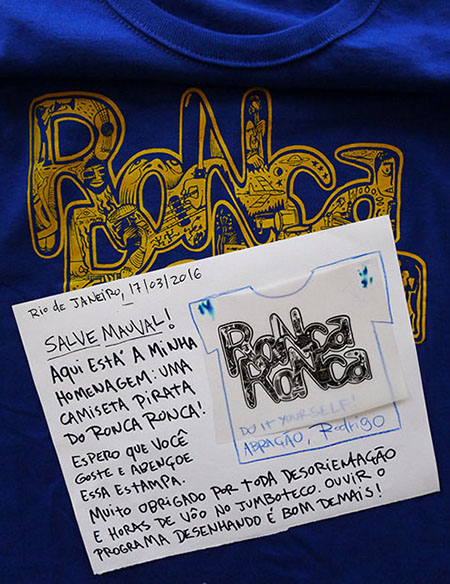 RONCA
RONCA
RIO DE JANEIRO, 17/03/2016
SALVE MAUVAL!
AQUI ESTÁ A MINHA
HOMENAGEM: UMA
CAMISETA PIRATA
DO RONCA RONCA!
ESPERO QUE VOCÊ
GOSTE E ABENÇOE
ESSA ESTAMPA.
MUITO OBRIGADO POR TODA DESORIENTAÇÃO
E HORAS DE VÔO NO JUMBOTECO. OUVIR O
PROGRAMA DESENHANDO É BOM DEMAIS!
RONCA
RONCA
DO IT YOURSELF!
ABRAÇÃO, Rodrigo